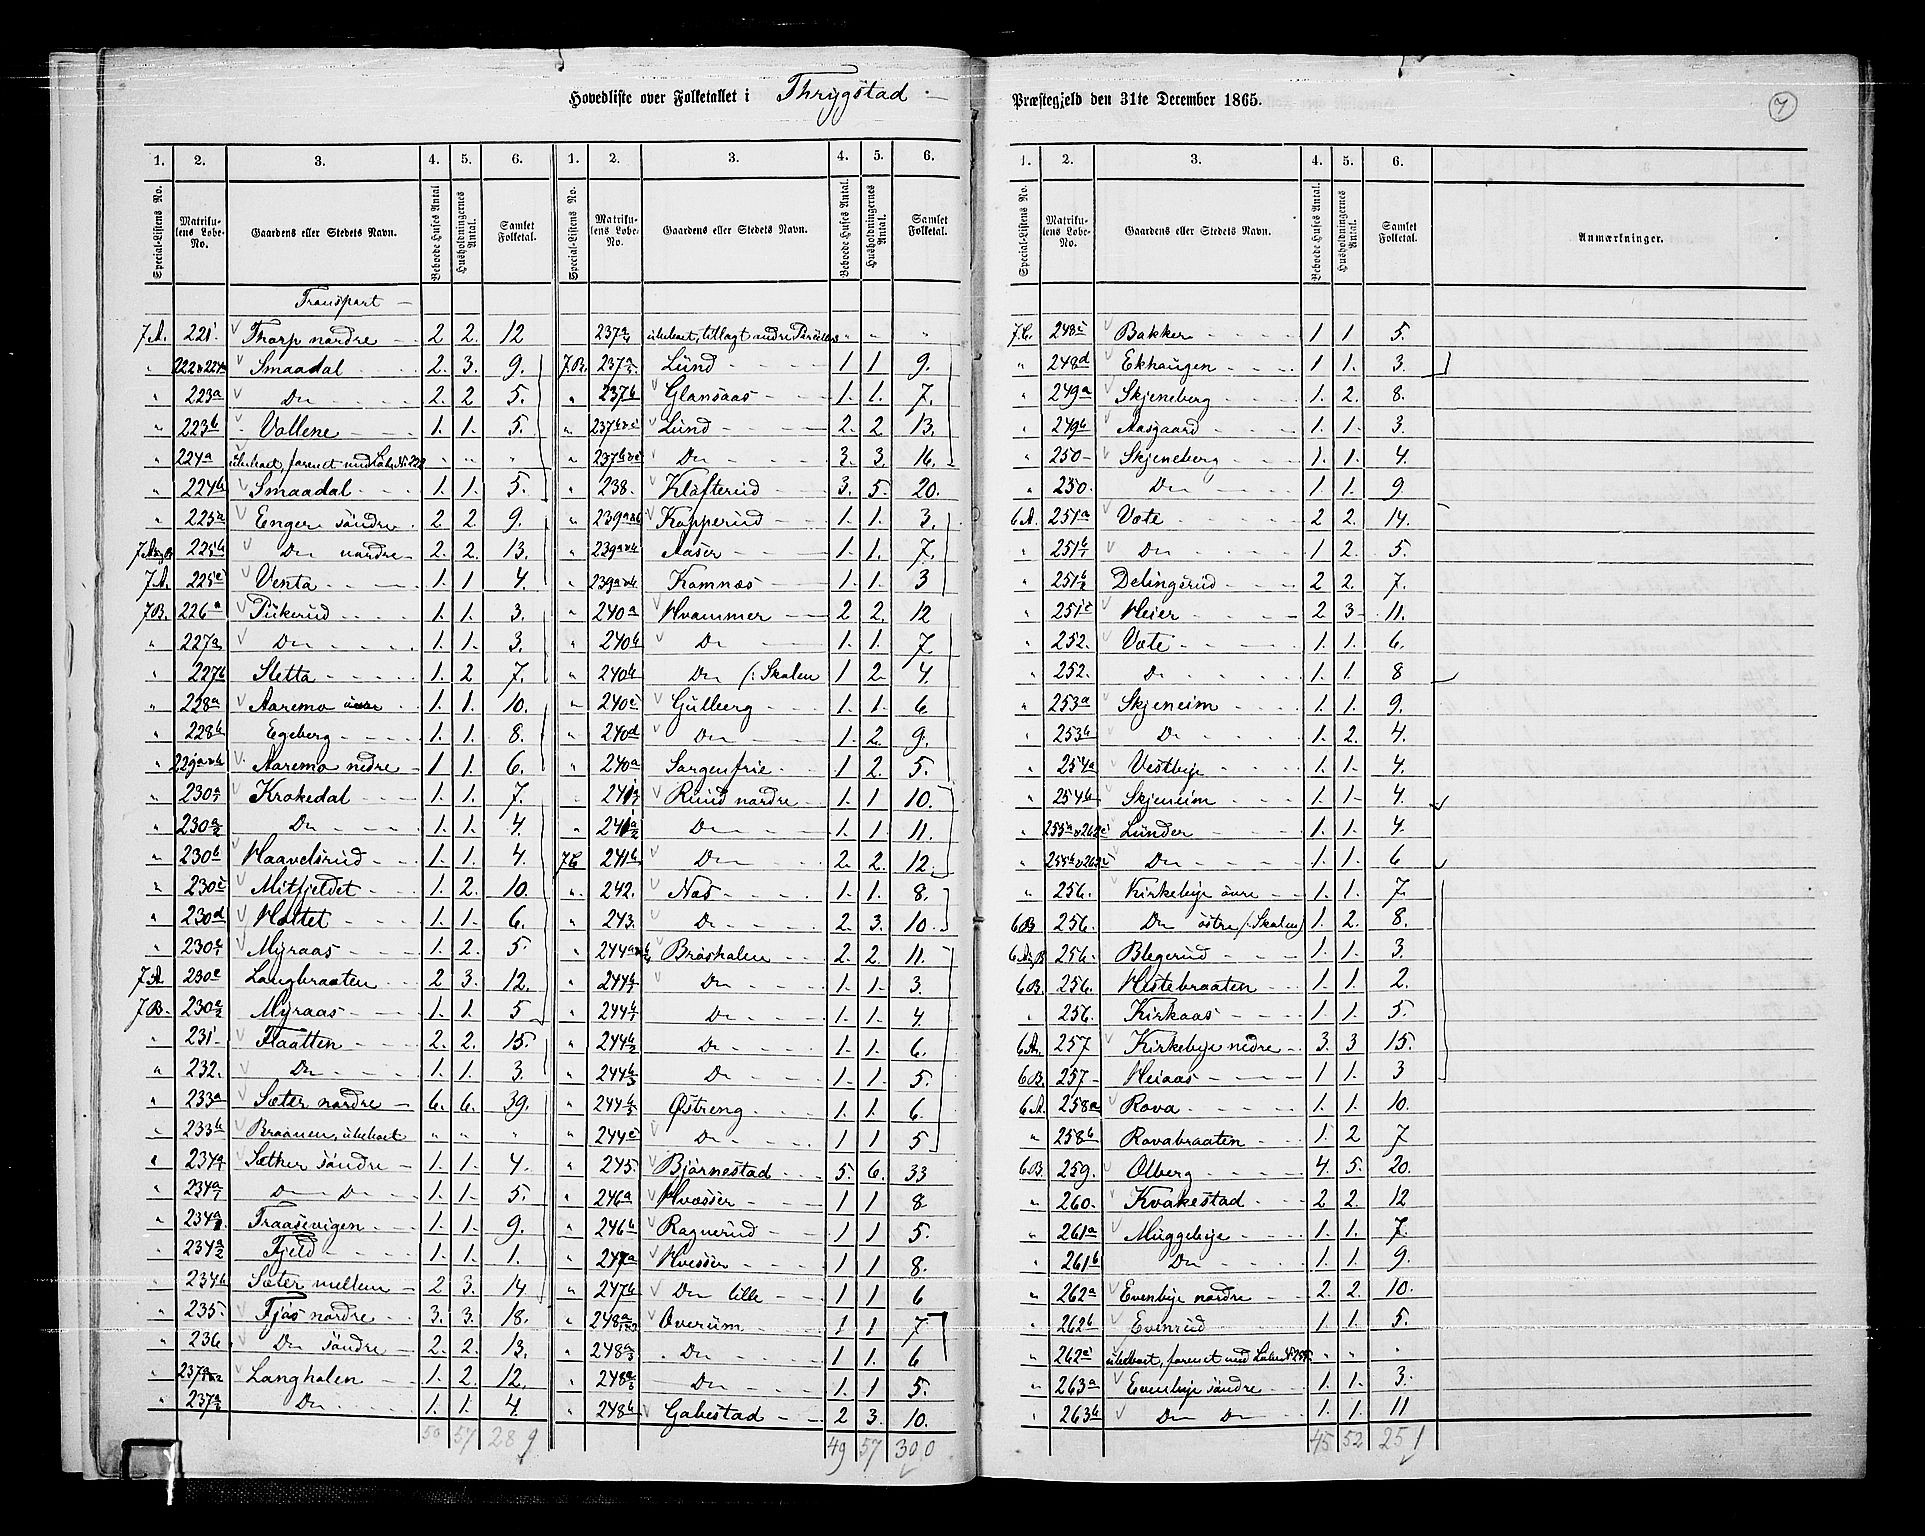 Hovedliste over Folketallet i Thrygstad — Præstegjeld den 31te December 1865.
7
1. 2. 3. 4. 5. 6. 1. 2. 3. 4. 5. 6. 1. 2. 3. 4. 5. 6.
Special-Listens No. Matrikulens Løbe-No. Gaardens eller Stedets Navn. Beboede Huses Antal Husholdningernes Antal. Samlet Folketal.
Special-Listens No. Matrikulens Løbe-No. Gaardens eller Stedets Navn. Beboede Huses Antal. Husholdningernes Antal. Samlet Folketal.
Special-Listens No. Matrikulens Løbe-No. Gaardens eller Stedets Navn. Beboede Huses Antal. Husholdningernes Antal. Samlet Folketal. Anmærkninger.
Transport —
7A. 221. Thorp nordre 2 2. 12
" 222 & 224a Smaadal 2. 3. 9.
" 223a Do 2. 2 5.
" 223b Vollene 1. 1. 5.
" 224a ubeboet, forenet med Løbe No 222 " " "
" 224b Smaadal 1. 1. 5.
" 225a Enger søndre 2. 2. 9.
7A og B 225b Do nordre 2. 2. 13.
7A. 225c Venta 1. 1 4.
7B. 226a Pukerud 1. 1. 3.
" 227a Do 1. 1. 3.
" 227b Sletta 1. 2 7.
" 228a Aaremo øvre 1. 1. 10.
" 228b Egeberg 1. 1. 8.
" 229a&b Aaremo nedre 1 1. 6.
" 230a/1 Krokedal 1. 1. 7.
" 230a/2 Do 1. 1. 4.
" 230b Haavelsrud 1. 1. 4
" 230c Mitfjeldet 1. 2. 10.
" 230d Hottet 1. 1. 6.
" 230e/1 Myraas 1. 2. 5
7A. 230e Langbraaten 2 3. 12.
7B. 230e/2 Myraas 1. 1. 5
" 231. Flaatten 2. 2. 15.
" 232. Do 1. 1. 3.
" 233a Sæter nordre 6. 6. 39.
" 233b Braanen, ubeboet " " "
" 234a/1 Sæther søndre 1. 1. 4.
" 234a/1 Do Do 1. 1. 5.
" 234a/1 Traasevigen 1. 1. 9.
" 234a/2 Fjeld 1. 1. 1.
" 234b Sæter mellem 2 3. 14
" 235 Fjøs nordre 3. 3. 18.
" 236 Do søndre 2. 2. 13.
" 237a/1&2 Langholen 1. 2. 12.
" 237a/3 Do 1. 1. 4.
50 57 289
237a/4 ubeboet, tillagt andre Parceller " " "
7B. 237a/5 Lund 1 1 9.
" 237b Glansaas 1. 1. 7.
" 237b&c Lund 2. 2 13.
" 237b&c Do 3. 3. 16.
" 238. Kløfterud 3. 5. 20.
" 239a&b Kopperud 1. 1. 3.
" 239a&b Aaser 1. 1. 7.
" 239a&b Komnæs 1. 1. 3
" 240a Hvammer 2 2. 12
" 240b Do 1. 1. 7
" 240b Do (: Skolen 1 2. 4.
" 240c Gulberg 1. 1. 6.
" 240d Do 1. 2. 9.
" 240a Sorgenfrie 1 2. 5.
241a/1 Ruud nordre 1. 1 10.
" 241a/2 Do 1. 1. 11.
7C 241b Do 2. 2. 12.
" 242. Næs 1. 1. 8.
" 243. Do 2. 3. 10.
" 244a Brøsholen 2. 2. 11.
" 244b Do 1. 1. 3.
" 244b/1 Do 1. 1. 4
" 244b/2 Do 1. 1. 6.
" 244b/3 Do 1. 1. 5.
" 244b/3 Østreng 1. 1. 6
" 244c Do 1 1 5
" 245. Bjørnestad 5. 6. 33
" 246a Hvæsser 1 1 8
" 246b Ragnerud 1 1 5.
" 247a Hvesser 1 1 8.
" 247b Do lille 1 1 6
" 248a/1&2 Overum 1 1 7
" 248a/3 Do 1 1. 6
" 248a/3 Do 1. 1 5.
" 248b Gabestad 2 3. 10.
49 57 300
7C. 248c Bakker 1 1 5.
" 248d Ekhaugen 1 1. 3.
" 249a Skjeneberg 1. 2. 8.
" 249b Aasgaard 1 1. 3.
" 250 Skjeneberg 1. 1. 4.
" 250. Do 1. 1. 9.
6A. 251a Væte 2 2. 14.
" 251b/1 Do 1 2. 5.
" 251b/2 Delingsrud 2 2. 7.
" 251c Heier 2. 3 11.
" 252. Væte 1. 1. 6.
" 252. Do 1. 1. 8
" 253a Skjeneim 1. 1. 9.
" 253b Do 1. 2. 4.
" 254a Vestbye 1. 1. 4.
" 254b Skjeneim 1. 1 4.
" 255a & 262c Lunder 1. 1. 4.
" 255b & 262c Do 1. 1. 6
" 256. Kirkebye øvre 1. 1. 7.
6B 256. Do østre (: Skolen) 1. 2. 8.
6A og B 256. Blegerud 1. 1. 3.
6B. 256. Hestebraaten 1. 1 2.
" 256. Kirkaas 1. 1. 5.
6A. 257 Kirkebye nedre 3. 3 15.
6B. 257 Heiaas 1 1. 3
6A. 258a Rova 1. 1. 10.
" 258b Rovabraaten 1. 2 7
6B. 259. Olberg 4. 5. 20.
" 260. Kvakestad 2 2. 12
" 261a Muggebye 1. 1. 7.
" 261b Do 1. 1. 9.
" 262a Evenbye nordre 2. 2. 10.
" 262b Evenrud 1. 1. 5.
" 262c ubeboet, forenet med Løbe No 255. " " "
" 263a Evenbye søndre 1. 1. 3.
" 263b Do Do 1. 1. 11
45 52 251